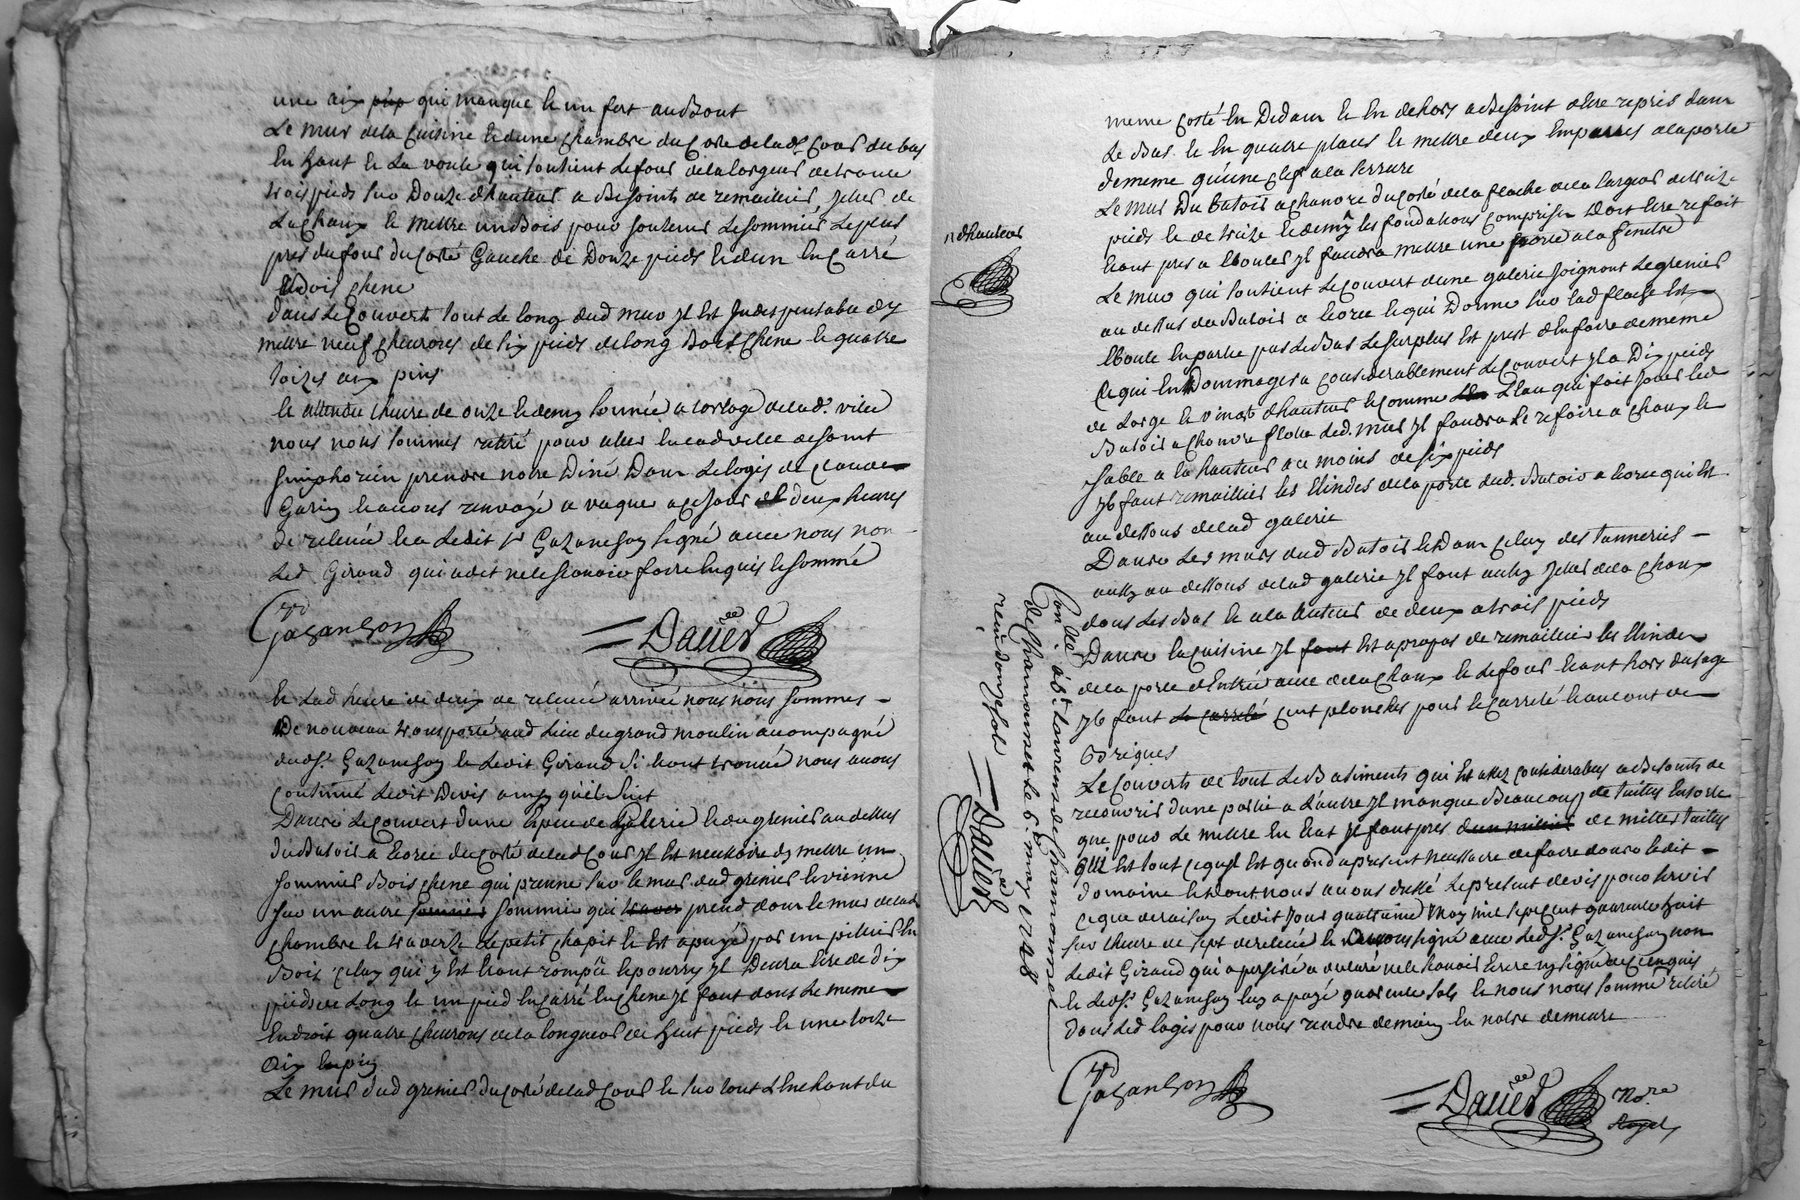 une aix qui manque & un fert au Bout
Le mur de la Cuisine & d'une Chambre du Coté de lad. Cour du bas
En haut & La voute qui soutient Le four de la largeur de trante
trois pieds sur Douze d'hauteur a Besoints de remaillier, jetter de
La Chaux & mettre un Bois pour soutenir Le sommier Le plus
pres du four du Coté Gauche de Douze pieds & d'un En Carré
Bois chene
dans Le Couvert tout Le long dud mur jl Est Indispensable d'y
mettre neuf chevrons de six pieds de long Bois Chene & quatre
toizes aix pins
& attendu l'heure de onze & demy sonnée a l'orloge de lad. ville
nous nous sommes retiré pour aller En lad ville de saint
simphorien prendre notre Diné Dans Le logis de Claude
Garin & avons renvoyé a vaquer a ce jour deux heures
de relevée & a Ledit sr Gazanchon signé avec nous non
Led. Giraud qui a dit ne le scavoir faire Enquis & sommé
Gazanchon
Davier
& Lad heure de deux de relevée arrivée nous nous sommes
De nouveau transporté aud Lieu du grand moulin accompagné
dud sr. Gazanchon & Ledit Giraud & avons
Continué Ledit Devis ainsy qu'il suit
Dans Le Couvert d'une de Galerie & du grenier au dessus
du Batoir a Ecorce du Coté de lad Cour jl Est necessaire d'y mettre un
sommier Bois chene qui prenne sur le mur dud grenier & vienne
sur un autre sommier qui prend dans le mur de lad
Chambre & traverse Le petit Chapit & Est apuyé par un pillier En
Bois Celuy qui y Est Etant rompu & pourry jl Devra Etre de Dix
pieds de Long & un pied En Carré En Chene jl faut dans Le meme
Endroit quatre Chevrons de la longueur de huit pieds & une toize
aix En pin
Le mur dud grenier du Coté de lad Cour & sur tout L'Enchant du
meme Costé En Dedans & En dehors a Besoint d'etre repris dans
Le Bas & En quatre places & mettre deux Emparres a la porte
de meme qu'une clef a la serrure
Le mur Du Batoir a chanvre du Coté de la flache de la largeur de treize
pieds & de treize & demy les fondations comprises Doit Etre refait
Etant pres a Ebouler jl faudra mettre une a la fenetre
Le mur qui soutient Le Couvert d'une galerie joignant Le grenier
au dessus du Batoir a Ecorce & qui Donne sur lad flache Est
Eboulé En partie par Le Bas Le surplus Est prest d'En faire de meme
Ce qui En Dommagera considerablement Le Couvert jl a Dix pieds
de Large & vingt d'hauteur & comme L'Eau qui fait jouer Led
Batoir a Chanvre flotte Led. mur jl faudra Le refaire a chaux &
sable a la hauteur au moins de six pieds
jl faut remaillier les Elindes de la porte dud. Batoir a Ecorce qui Est
au dessous de lad galerie
Dans Les murs dud Batoir & Dans Celuy des tanneries
aussy au dessous de lad galerie jl faut aussy jetter de la chaux
dans Les Bas & a la auteur de deux a trois pieds
Dans la Cuisine jl Est a propos de remaillier les Elindes
de la porte d'Entrée avec de la Chaux & Le four Etant hors d'usage
jl faut cent plonelles pour Le Carrelé
Briques
Le Couvert de tout Le Batiments qui Est assez considerable a Besoints de
recouvrir d'une partie a L'autre jl manque Beaucoup de tuilles En sorte
que pour Le mettre En Etat jl faut pres de milles tuilles
qui Est tout Ce qu'il Est quand a present necessaire de faire dans ledit
domaine & dont nous avons dressé Le present devis pour servir
Ce que de raison Ledit jour quatrieme May mil sept cent quarente huit
sur l'heure de sept de relevée & avons signé avec Led sr. Gazanchon non
Ledit Giraud qui a persisté a declaré ne scavoir Ecrire ny signer de ce Enquis
& Led sr. Gazanchon En a payé quarente sols & nous nous sommé retiré
dans Led logis pour nous rendre demain En notre demeure
Gazanchon
Davier
Nore
Royal
d'hauteur
Conllé. à St. Laurens de Chamousset
de Chamousset Le 6e. may 1748
reçu douze sols
Davier